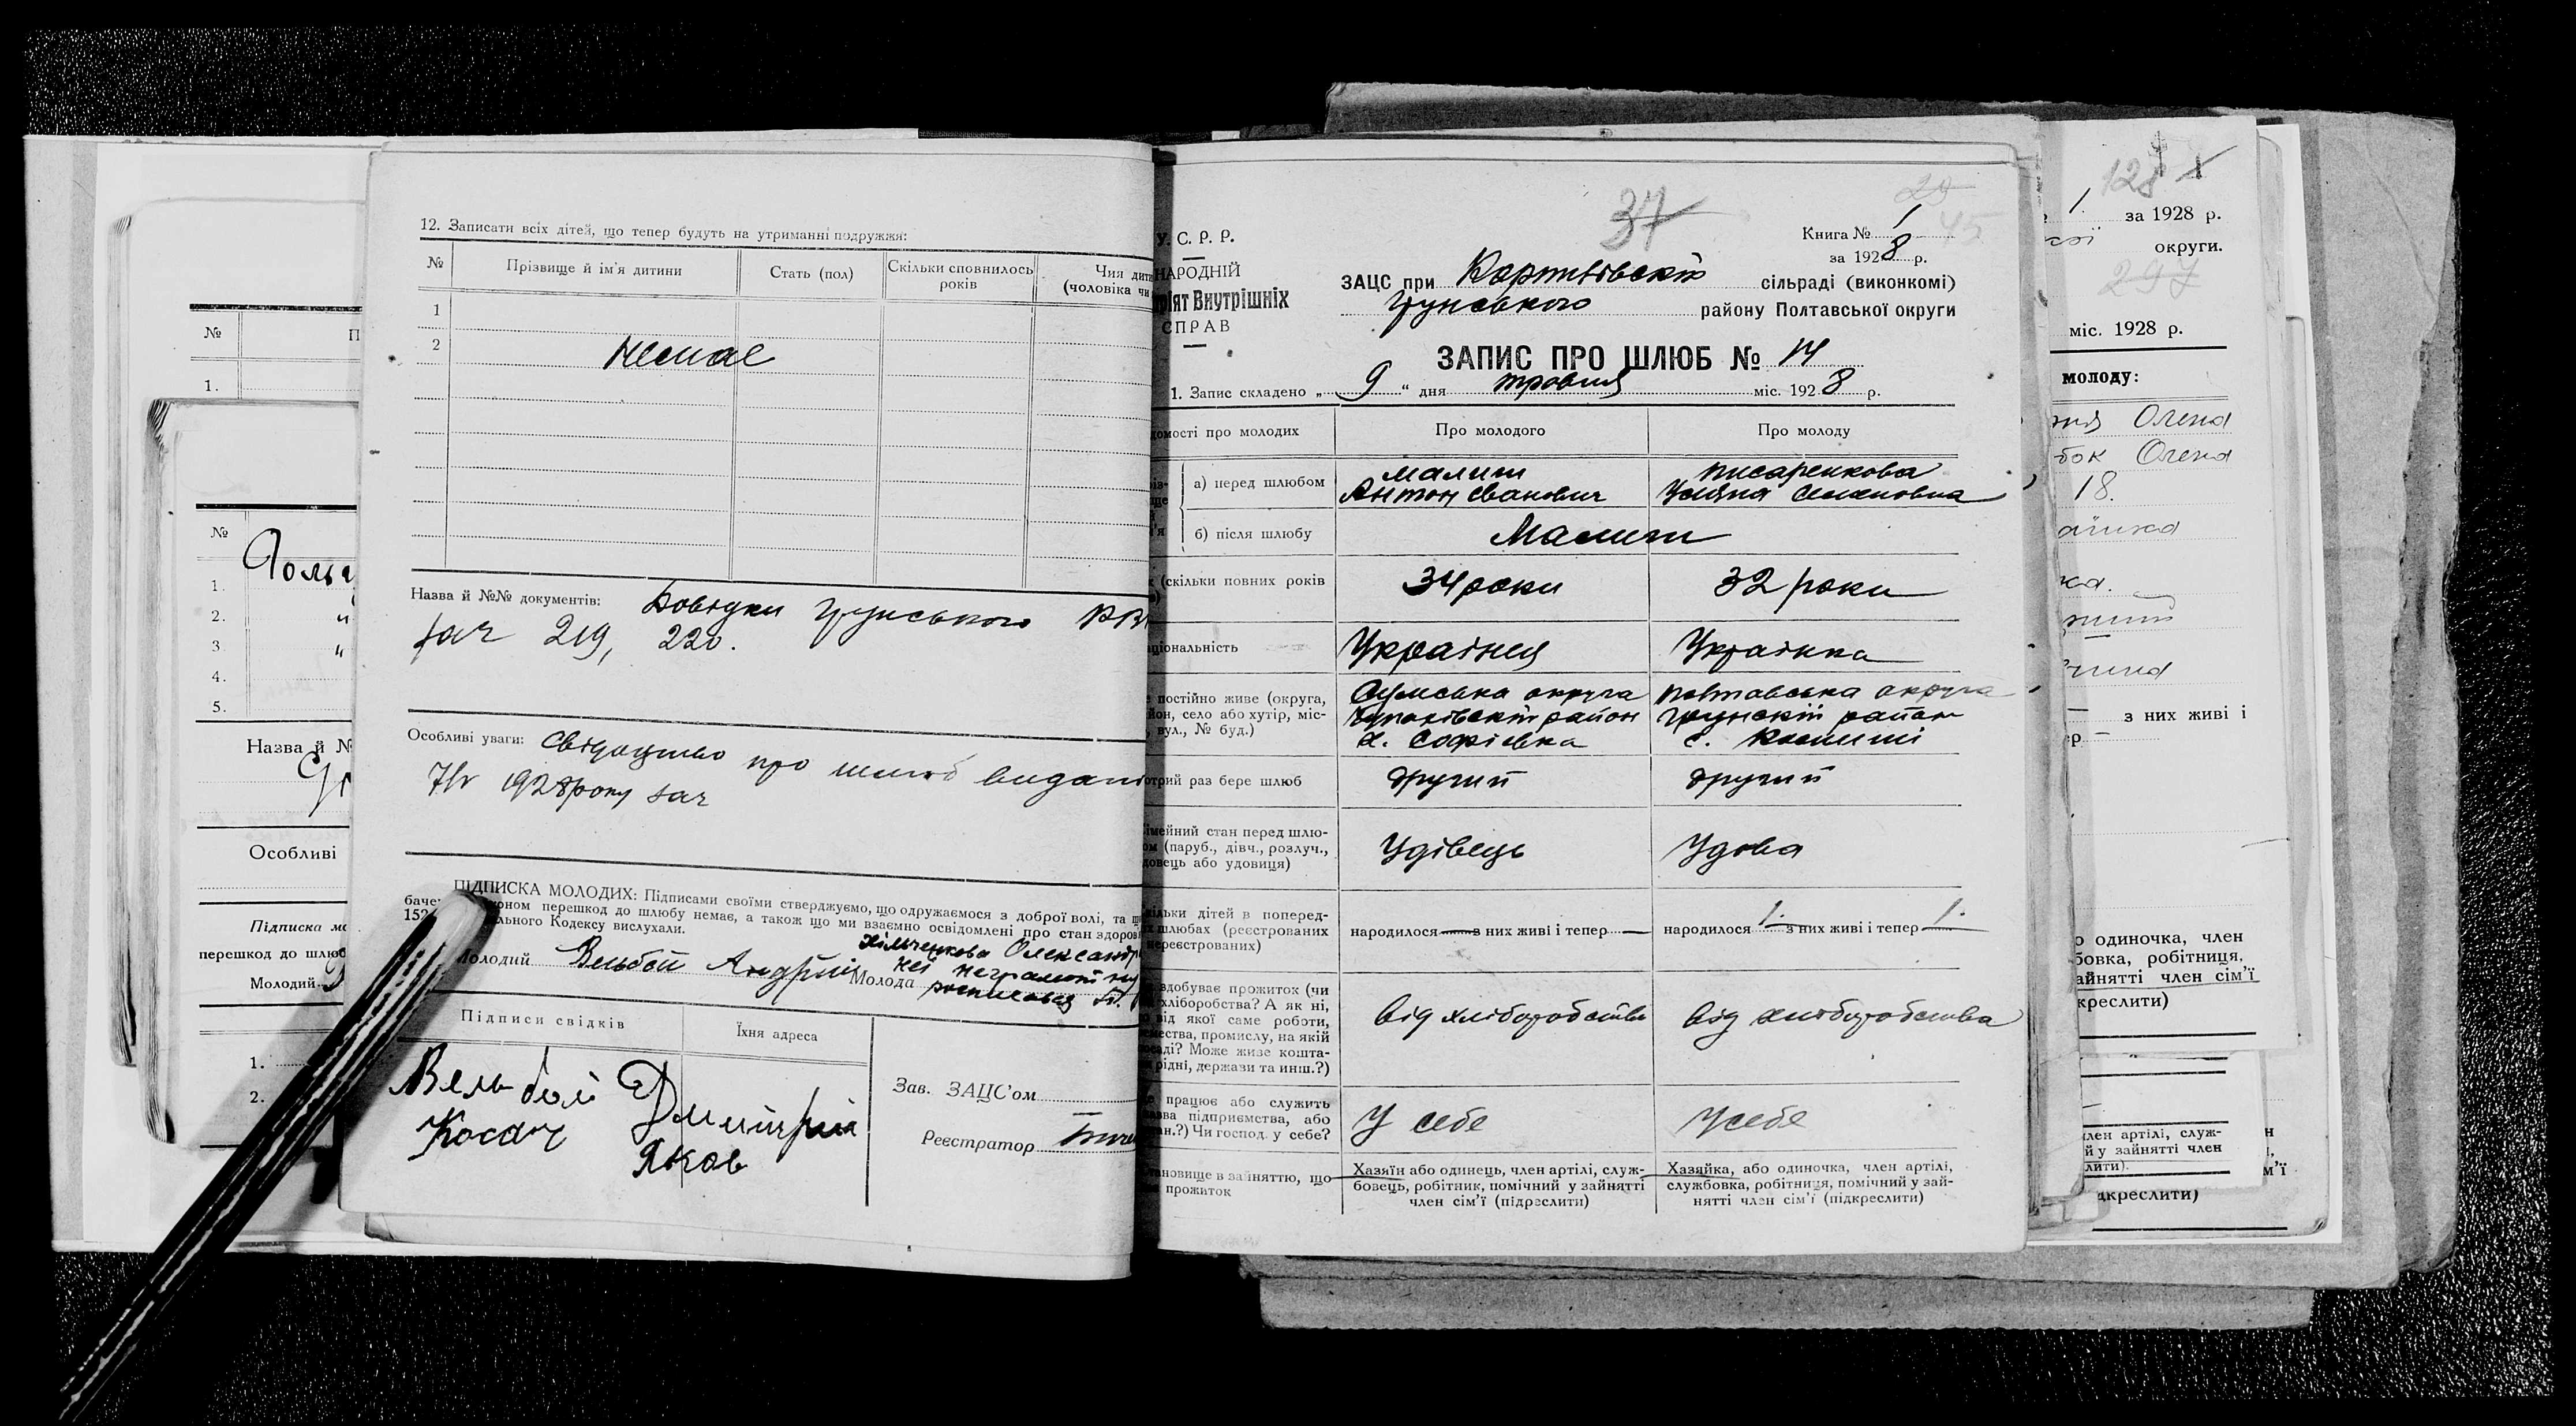 12. Записати всіх дітей, що тепер будуть на утриманні подружжя:
№ Прізвище й ім'я дитини Стать (пол) Скільки сповнилось років Чия дити (чоловіка чи
1
2
Немає
Назва й №№ документів: Довідки Грунського
за № 219, 220.
Особливі уваги: Свідоцтво про шлюб видано
1928 року за №
ПІДПИСКА МОЛОДИХ: Підписами своїми стверджуємо, що одружаємося з доброї волі, та
коном перешкод до шлюбу немає, а також що ми взаємно освідомлені про стан здоров
льного Кодексу вислухали.
Олександр
Молодий Вельбой Андрій Молода неграмотну
росписався
Підписи свідків Їхня адреса
Вельбой Дмитрий
Косач Яков
Зав. ЗАЦС'ом
Реєстратор
У. С. Р. Р.
НАРОДНІЙ
ріят Внутрішніх
СПРАВ
37
29
45
Книга № 1
за 1928 р.
ЗАЦС при сільраді (виконкомі)
Грунського району Полтавської округи
ЗАПИС ПРО ШЛЮБ № 14
1. Запис складено „ 9 “ дня травня міс. 1928 р.
домості про молодих Про молодого Про молоду
а) перед шлюбом Малиш Антон Іванович Писаренкова Уляна Семеновна
б) після шлюбу Малиш
(скільки повних років 34 роки 32 роки
ціональність Українец Українка
постійно живе (округа,
йон, село або хутір, міс-
вул., № буд.)
Сумська округа
район
х. Софіевка
Полтавська округа
Грунскій район
с.
отрий раз бере шлюб другий другий
імейний стан перед шлю-
ом (паруб., дівч., розлуч.,
довець або удовиця)
Удівець Удова
кільки дітей в поперед-
х шлюбах (реєстрованих
нереєстрованих)
народилося — з них живі і тепер —
народилося 1. з них живі і тепер 1.
здобуває прожиток (чи
хліборобства? А як ні,
від якої саме роботи,
мества, промислу, на якій
аді? Може живе кошта-
рідні, держави та инш.?)
від хліборобства від хліборобства
працює або служить
азва підприємства, або
ан.?) Чи господ. у себе?
У себе У себе
тановище в зайняттю, що
прожиток
Хазяїн або одинець, член артілі, служ-
бовець, робітник, помічний у зайнятті
член сім'ї (підреслити)
Хазяйка, або одиночка, член артілі,
службовка, робітниця, помічний у зай-
нятті член сім'ї (підкреслити)
№ П
1.
№
1.
2. "
3. "
4.
5.
Назва й №
Особливі
Підписка мо
перешкод до шлюб
Молодий
1.
2.
128
1. за 1928 р.
округи.
297
міс. 1928 р.
молоду:
Олена
бок Олена
18.
— з них живі і
ер —
о одиночка, член
бовка, робітниця,
айнятті член сім'ї
креслити)
лен артілі, служ-
й у зайнятті член
лити).
м'ї
дкреслити)